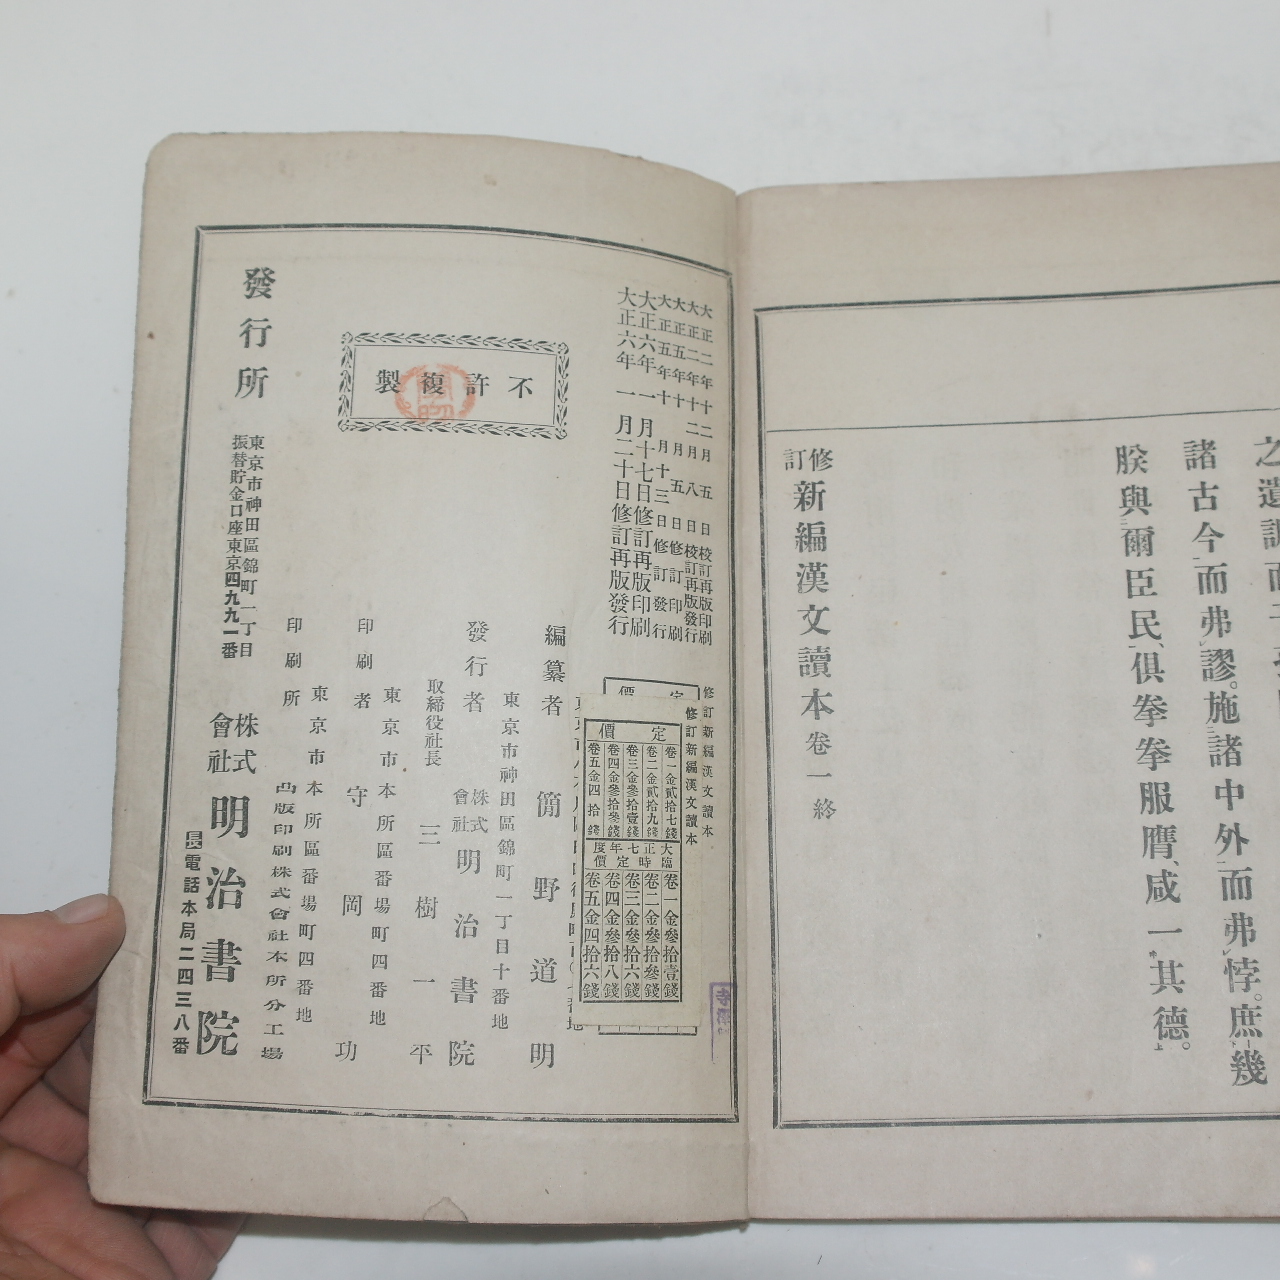 之遺訓而
諸古今而弗謬。施諸中外而弗悖。庶幾
朕與爾臣民、俱拳拳服膺、咸一其德。
修訂新編漢文讀本卷一終
大正二年十二月五日校訂再版印刷
大正二年十二月八日校訂再版發行
大正五年十月五日修訂印刷
大正五年十月十三日修訂發行
大正六年一月十七日修訂再版印刷
大正六年一月二十日修訂再版發行
不許複製
修訂新編漢文讀本
修訂新編漢文讀本
定價
卷一金貳拾七錢
卷二金貳拾九錢
卷三金參拾壹錢
卷四金參拾參錢
卷五金四拾錢
大正七年度臨時定價
卷一金參拾壹錢
卷二金參拾參錢
卷三金參拾六錢
卷四金參拾八錢
卷五金四拾六錢
編纂者 簡野道明
東京市神田區錦町一丁目十番地
發行者 株式會社明治書院
取締役社長 三樹一平
東京市本所區番場町四番地
印刷者 守岡功
東京市本所區番場町四番地
印刷所 凸版印刷株式會社本所分工場
發行所
東京市神田區錦町一丁目
振替貯金口座東京四九九一番
株式會社明治書院
長電話本局二四三八番